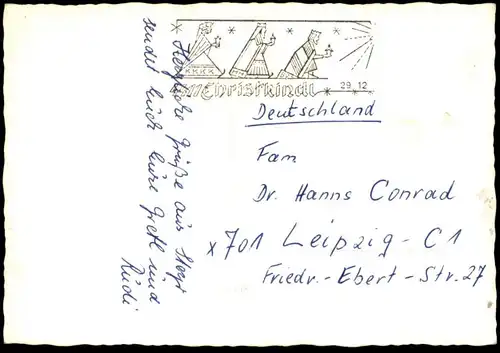 Christkindl
29. 12.
Herzliche Grüße aus Steyr
sendet Euch Eure Gretl und
Rudi
Deutschland
Fam
Dr. Hanns Conrad
x701 Leipzig - C1
Friedr.-Ebert-Str. 27